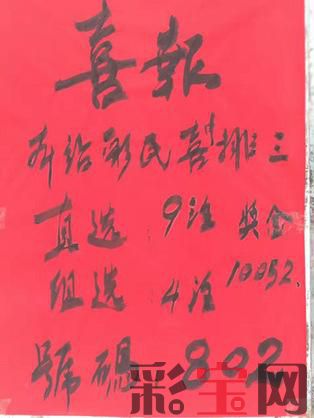 喜報
本站彩民喜中排三
直选:9注 奖金
组选 4注 10052.
號碼 802
彩宝网